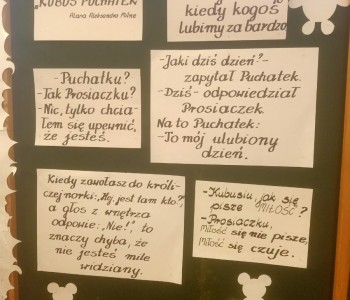 "KUBUŚ PUCHATEK"
Alana Aleksandra Milne
kiedy kogoś
lubimy za bardzo
-Puchatku?
-Tak Prosiaczku?
-Nic, tylko chcia-
łem się upewnić,
że jesteś.
-Jaki dziś dzień?-
zapytał Puchatek.
-Dziś- odpowiedział
Prosiaczek.
Na to Puchatek:
-To mój ulubiony
dzień.
Kiedy zawołasz do króli-
czej norki: „Hej, jest tam kto?",
a głos z wnętrza
odpowie: „Nie!", to
znaczy chyba, że
nie jesteś mile
widziany.
-Kubusiu, jak się
pisze MIŁOŚĆ?
-Prosiaczku,
MIŁOŚĆ się nie pisze,
MIŁOŚĆ się czuje.